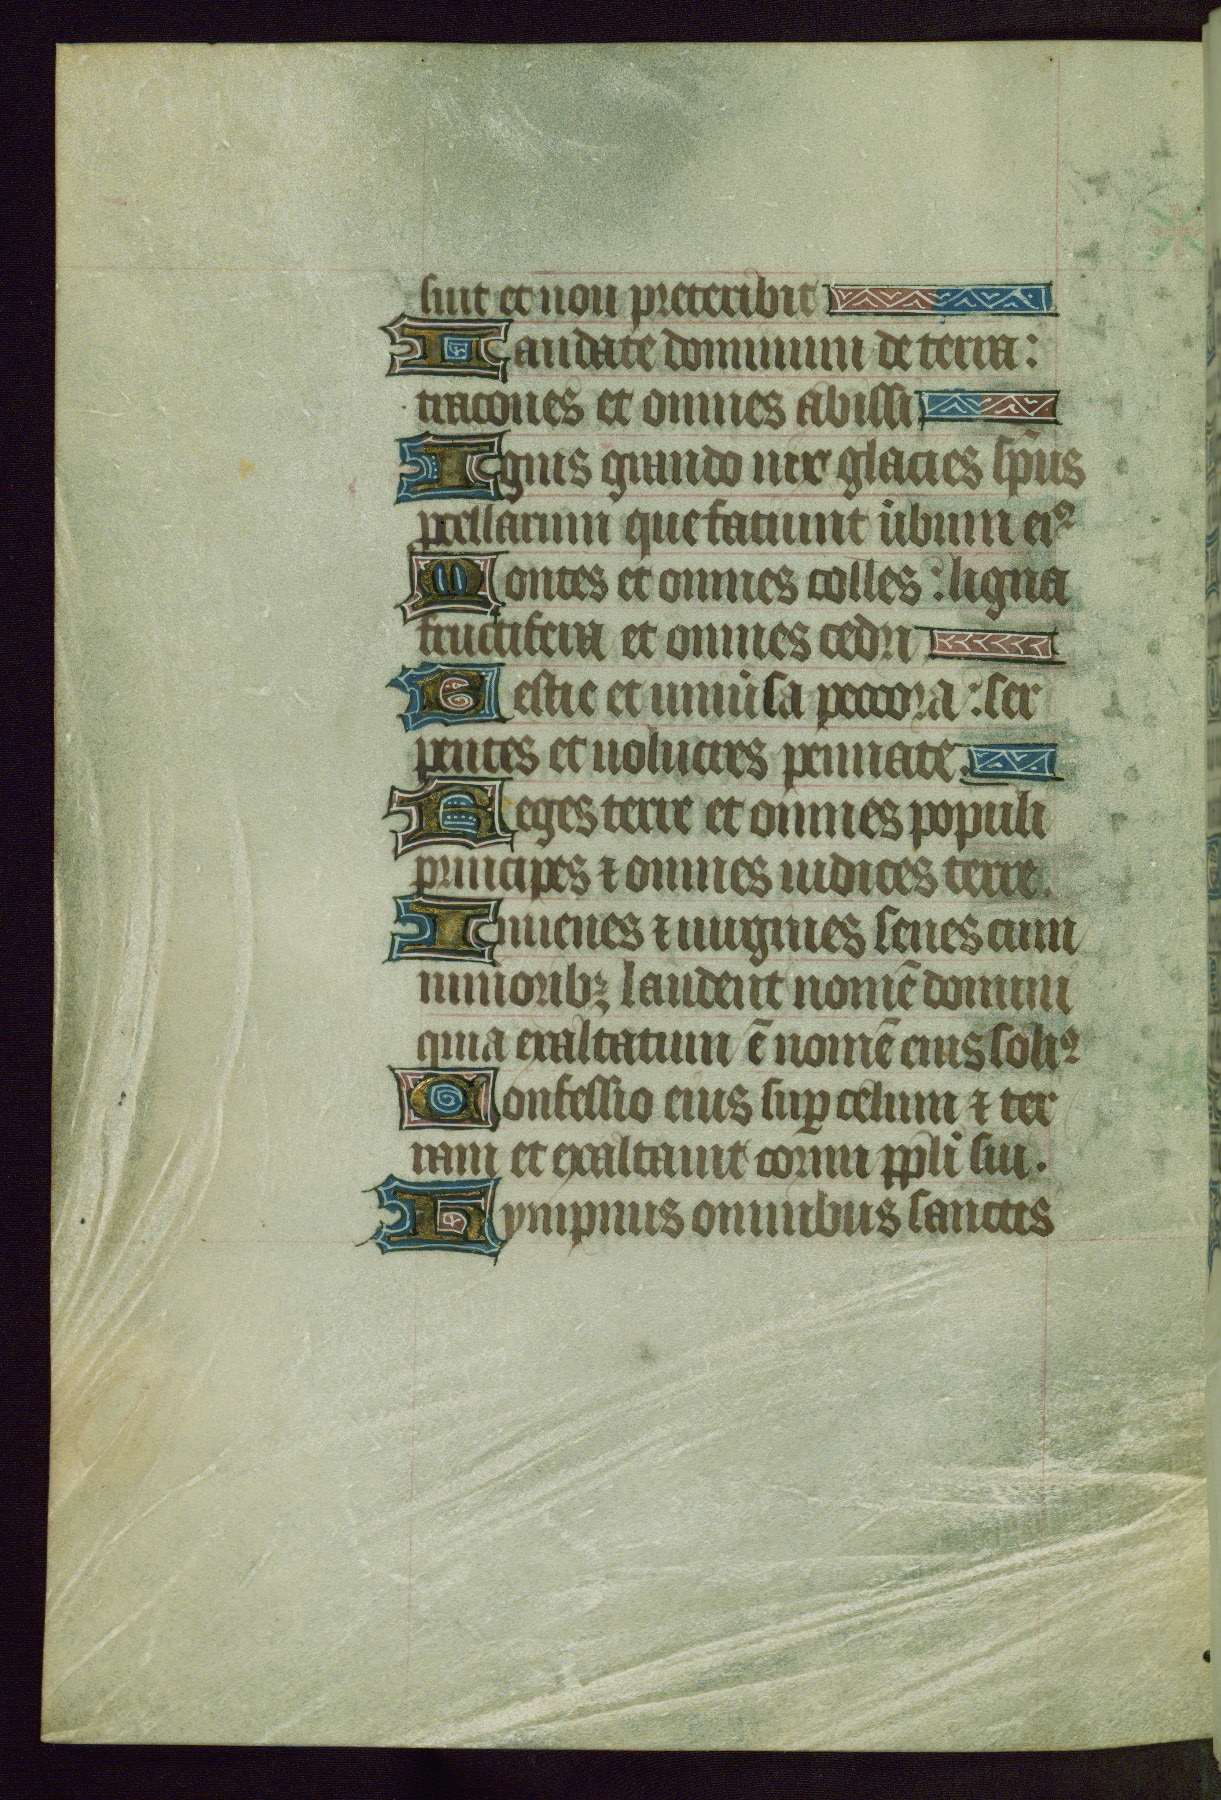 suit et non preteribit
Laudate dominum de terra:
dracones et omnes abissi
Ignis grando nix glacies sp̄us
pcellarum que faciunt ûbum eiꝰ
Montes et omnes colles: ligna
fructifera et omnes cedri
Bestie et uniûsa peccora: ser
pentes et uolucres pennate.
Reges terre et omnes populi
principes ⁊ omnes iudices terre.
Iuuenes ⁊ uirgines senes cum
iunioribꝫ laudent nomē domini
quia exaltatum ē nomē eius soliꝰ
Confessio eius suꝑ celum ⁊ ter
ram et exaltauit cornu ppli sui.
Hympnus omnibus sanctis